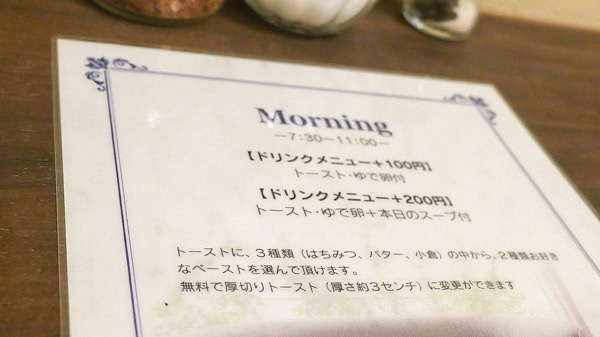 Morning
—7:30～11:00—
【ドリンクメニュー＋100円】
トースト・ゆで卵付
【ドリンクメニュー＋200円】
トースト・ゆで卵＋本日のスープ付
トーストに、３種類（はちみつ、バター、小倉）の中から、２種類お好き
なペーストを選んで頂けます。
無料で厚切りトースト（厚さ約３センチ）に変更ができます